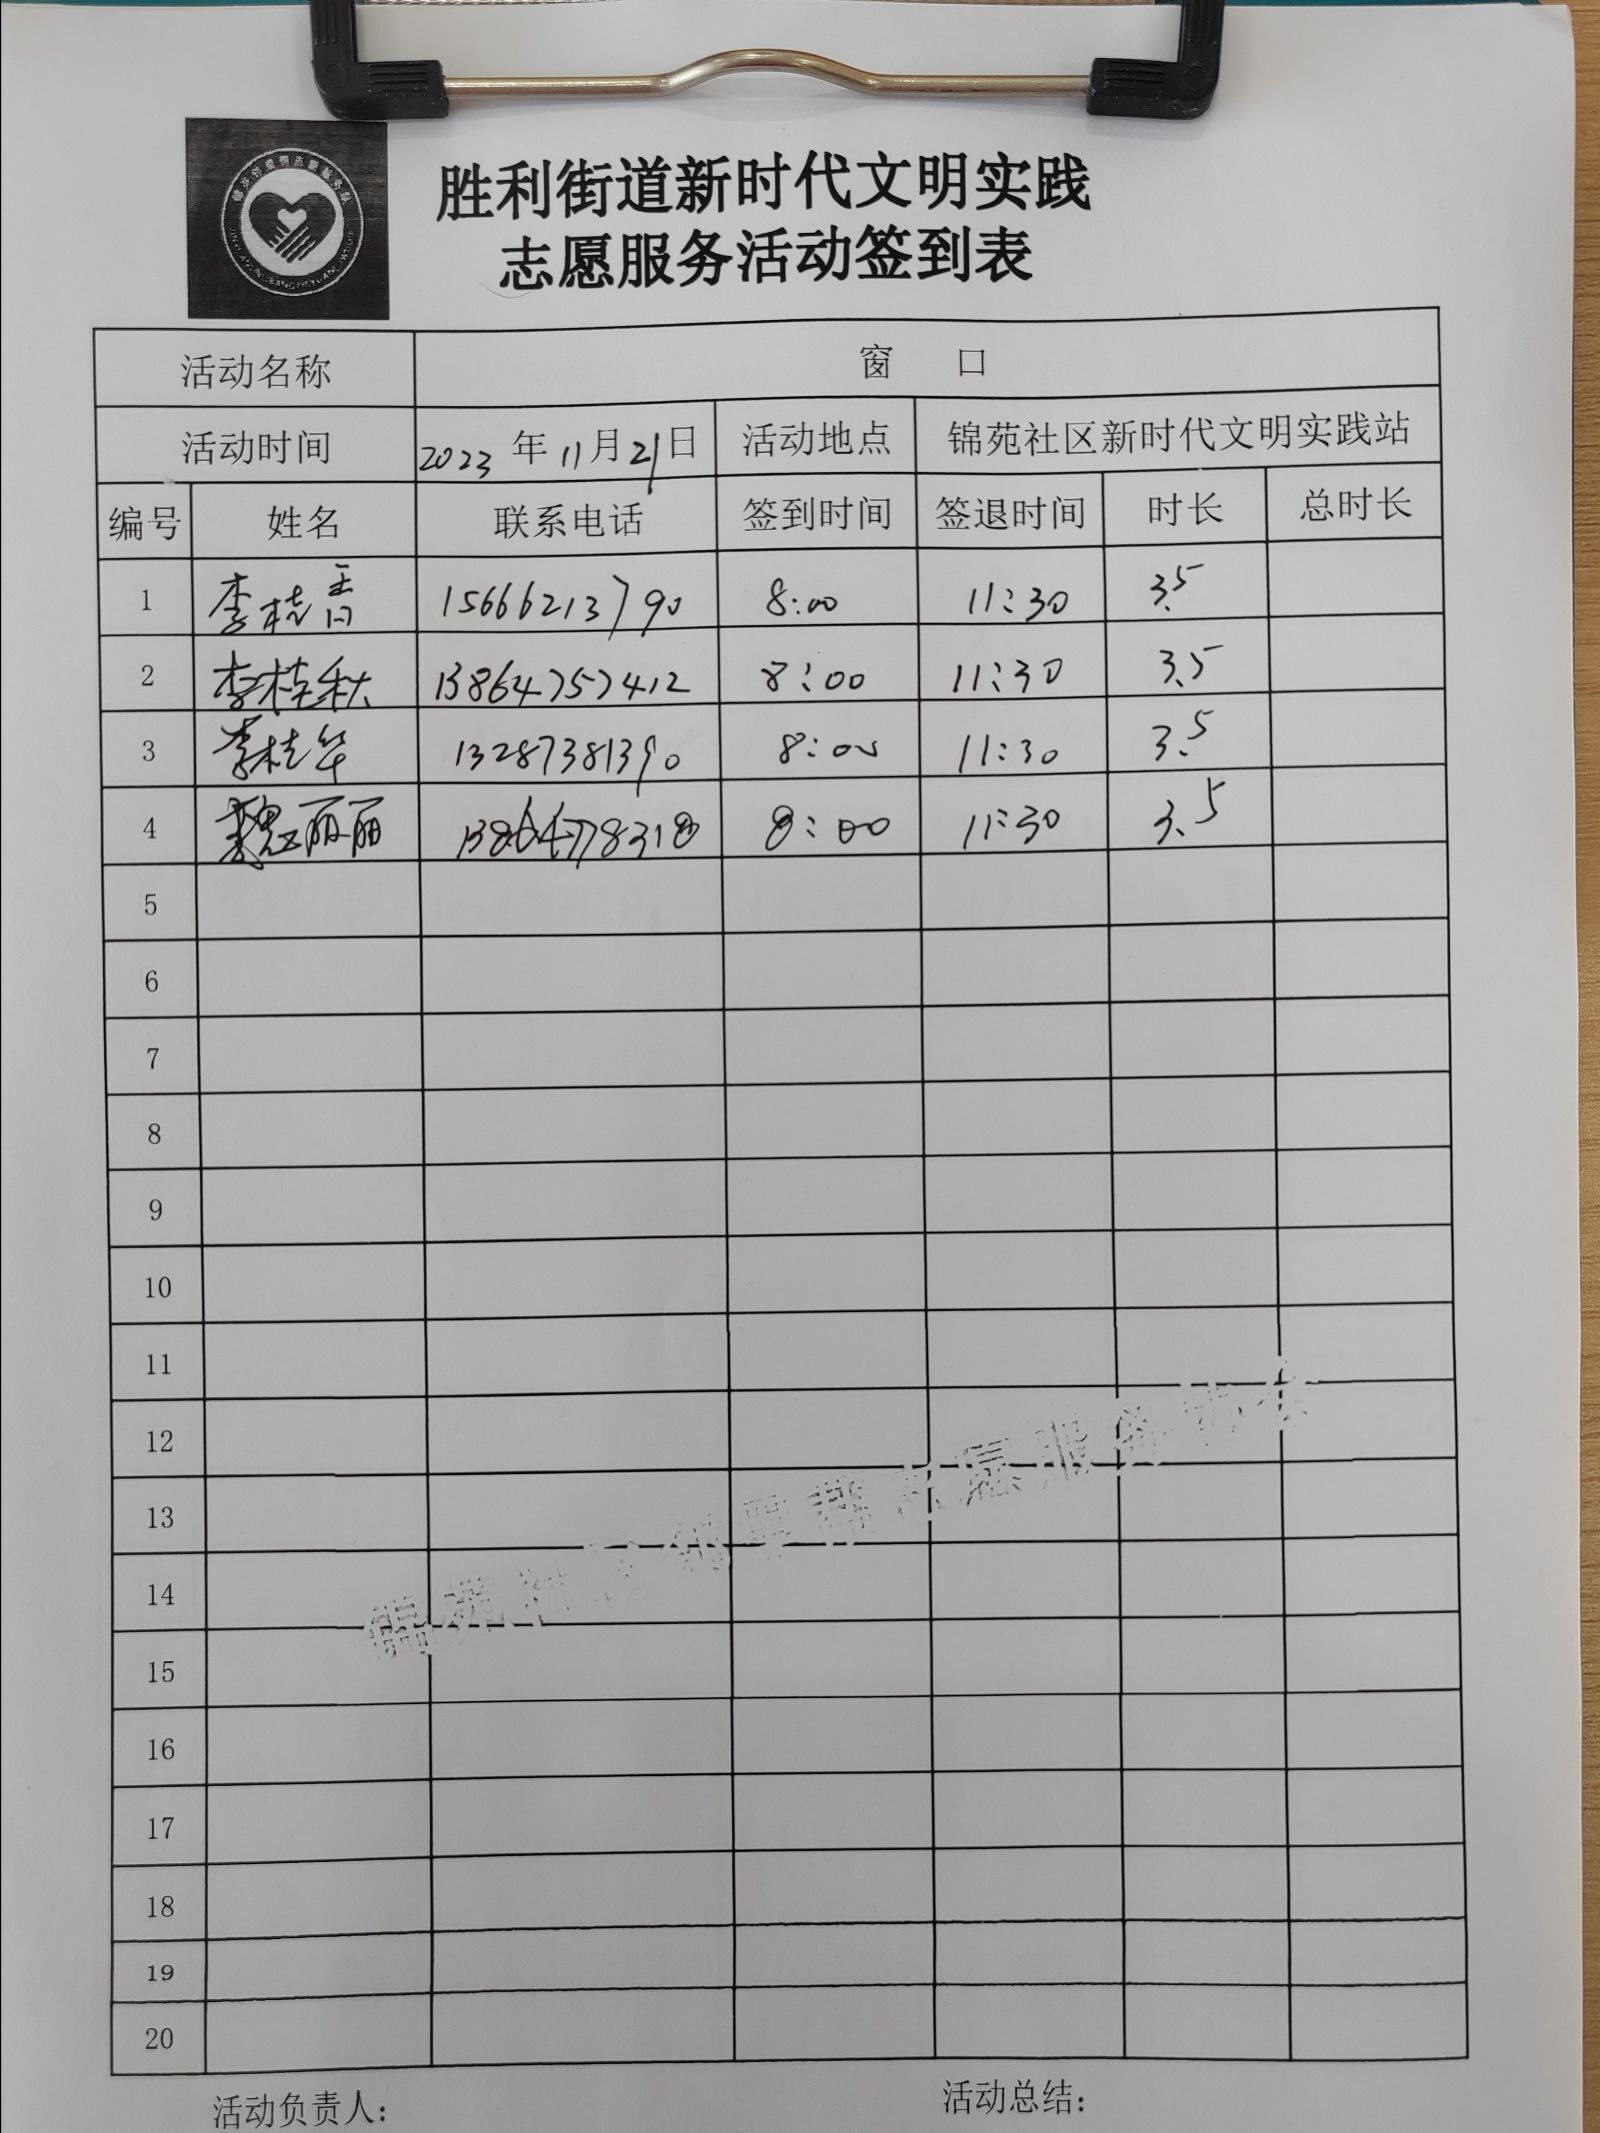 胜利街道新时代文明实践
志愿服务活动签到表
活动名称 窗 口
活动时间 2023 年 11 月 21 日 活动地点 锦苑社区新时代文明实践站
编号 姓名 联系电话 签到时间 签退时间 时长 总时长
1 李桂香 15666213790 8:00 11:30 3.5
2 李桂秋 13864757412 8:00 11:30 3.5
3 李桂华 13287381390 8:00 11:30 3.5
4 魏丽丽 13864778318 8:00 11:30 3.5
5
6
7
8
9
10
11
12
13
14
15
16
17
18
19
20
活动负责人:
活动总结: